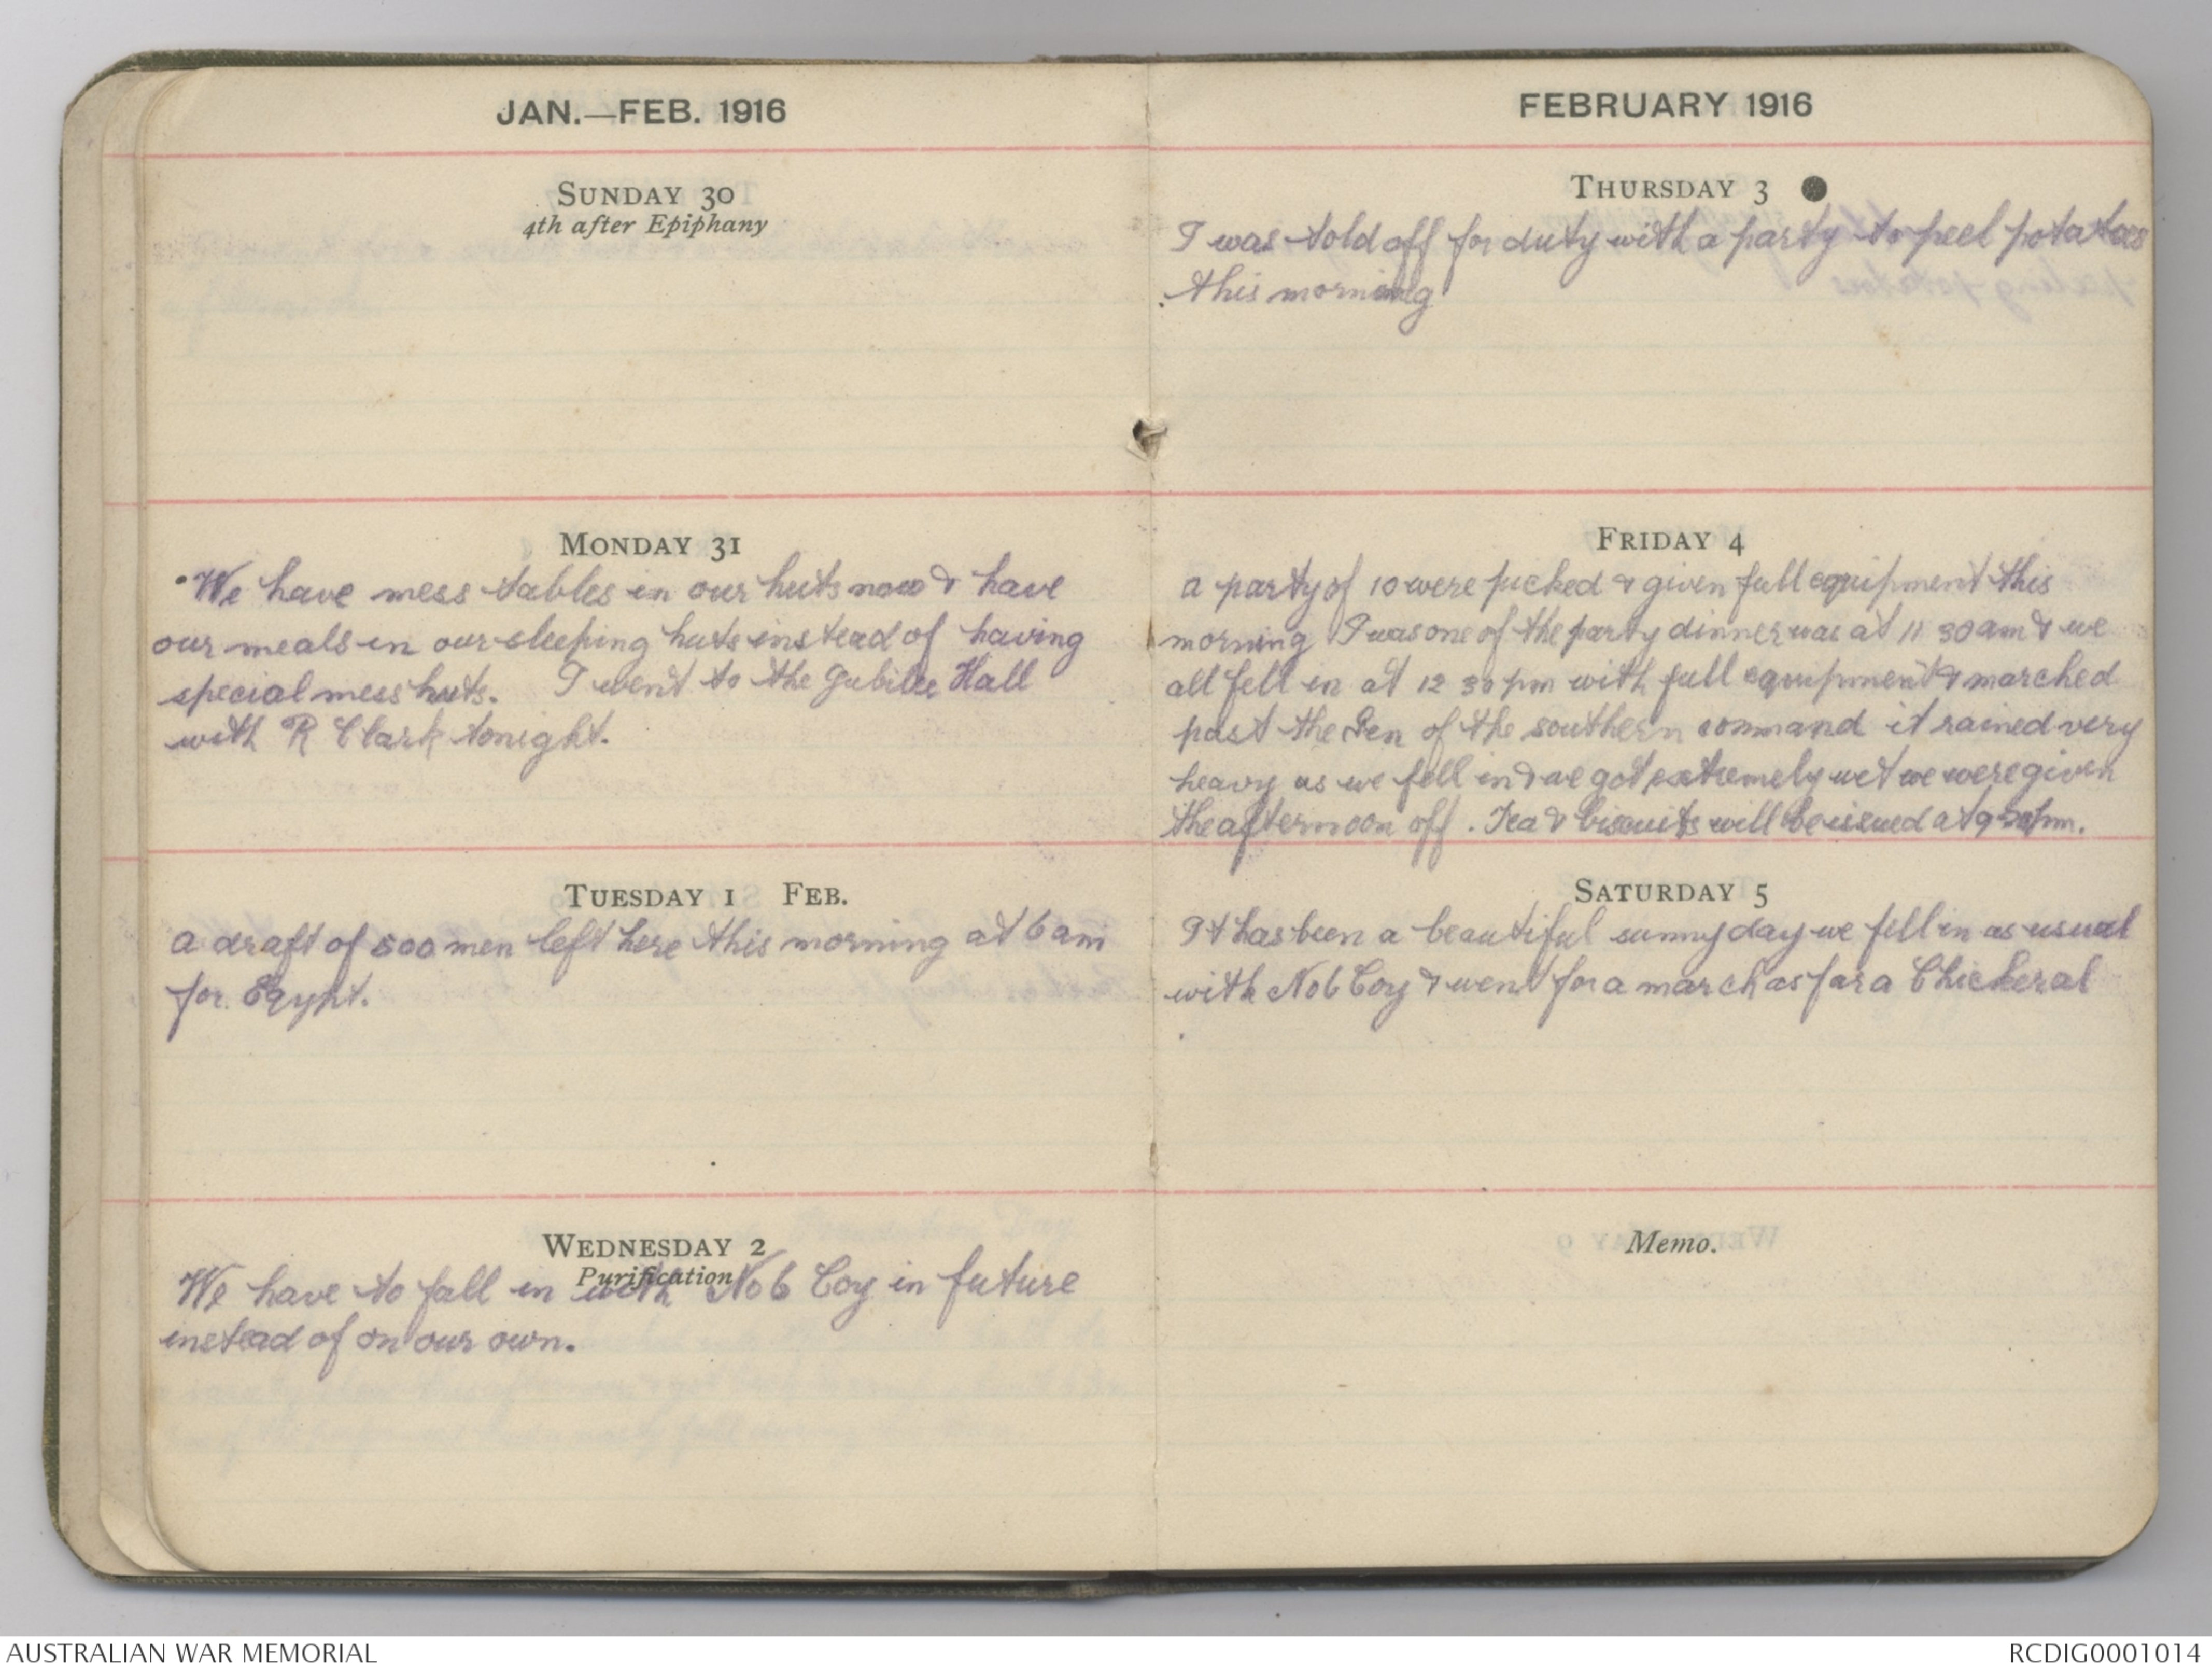 JAN.—FEB. 1916
SUNDAY 30
4th after Epiphany
MONDAY 31
We have mess tables in our huts now & have
our meals in our sleeping huts instead of having
special mess huts. I went to the Jubilee Hall
with R Clark tonight.
TUESDAY 1 FEB.
a draft of 500 men left here this morning at 6 am
for Egypt.
WEDNESDAY 2
Purification
We have to fall in with No 6 Coy in future
instead of on our own.
FEBRUARY 1916
THURSDAY 3
I was told off for duty with a party to peel potatoes
this morning
FRIDAY 4
a party of 10 were picked & given full equipment this
morning I was one of the party dinner was at 11 30 am & we
all fell in at 12 30 pm with full equipment & marched
past the Gen of the southern command it rained very
heavy as we fell in & we got extremely wet we were given
the afternoon off. Tea & biscuits will be issued at 9 pm.
SATURDAY 5
It has been a beautiful sunny day we fell in as usual
with No 6 Coy & went for a march as far a Chickeral
Memo.
AUSTRALIAN WAR MEMORIAL
RCDIG0001014